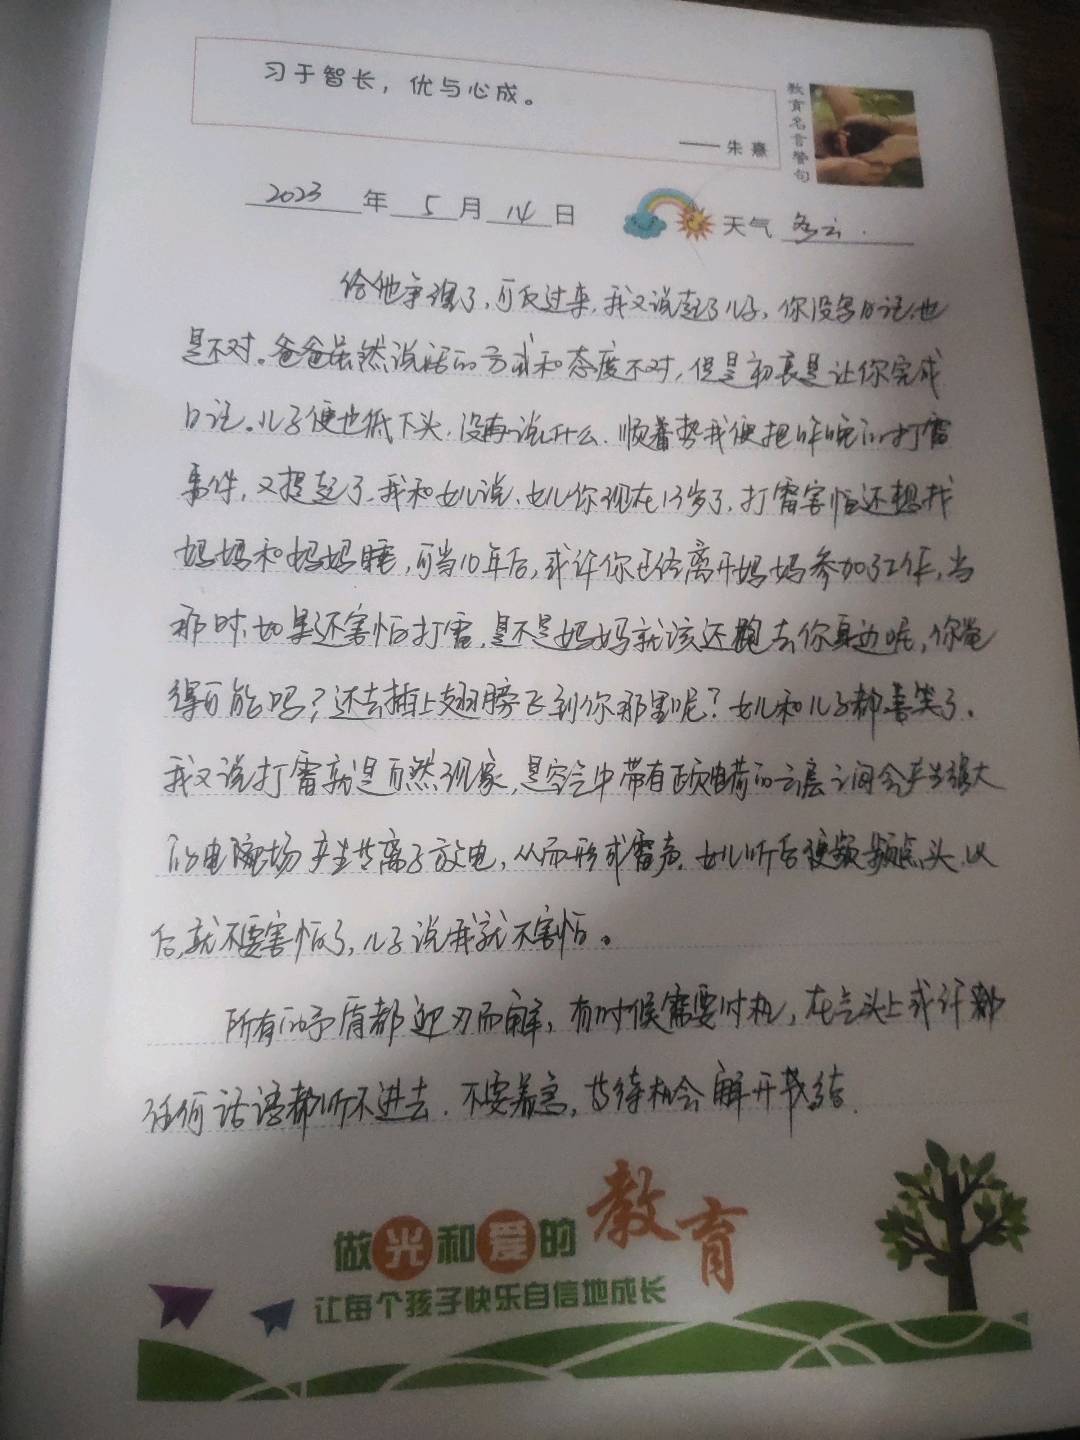 习于智长，优与心成。
—— 朱熹
教育名言警句
2023 年 5 月 14 日 天气 多云.
给他争理了,可反过来,我又说起了儿子,你没写日记也
是不对。爸爸虽然说话的方式和态度不对,但是初衷是让你完成
日记。儿子便也低下头,没再说什么.顺着势我便把昨晚的打雷
事件,又提起了.我和女儿说,女儿你现在13岁了,打雷害怕还想找
妈妈和妈妈睡,可当10年后,或许你已经离开妈妈参加了工作,当
那时,如果还害怕打雷,是不是妈妈就该还跑去你身边呢,你觉
得可能吗?还去插上翅膀飞到你那里呢?女儿和儿子都喜笑了.
我又说打雷就是自然现象,是空气中带有正负电荷的云层之间会产生强大
的电场产生等离子放电,从而形成雷声.女儿听后便频频点头,以
后,就不要害怕了,儿子说我就不害怕。
所有的矛盾都迎刃而解,有时候需要时机,在气头上或许都
任何话语都听不进去.不要着急,等待机会解开栽结.
做光和爱的教育
让每个孩子快乐自信地成长